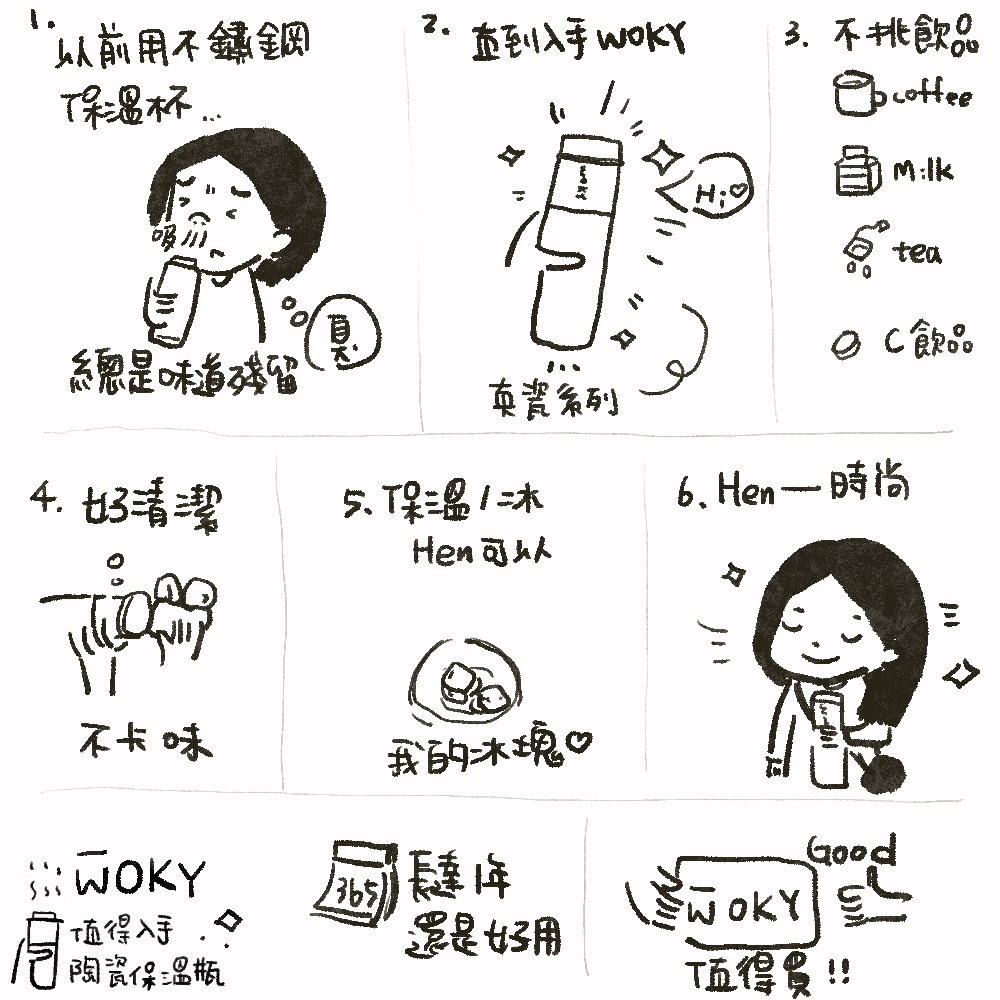 1.
以前用不鏽鋼
保溫杯...
臭
總是味道殘留
2.
直到入手WOKY
Hi♡
真瓷系列
3. 不挑飲品
coffee
Milk
tea
C飲品
4. 好清潔
不卡味
5. 保溫/冰
Hen可以
我的冰塊♡
6. Hen一時尚
WOKY
值得入手
陶瓷保溫瓶
365
長達1年
還是好用
Good
WOKY
值得買!!